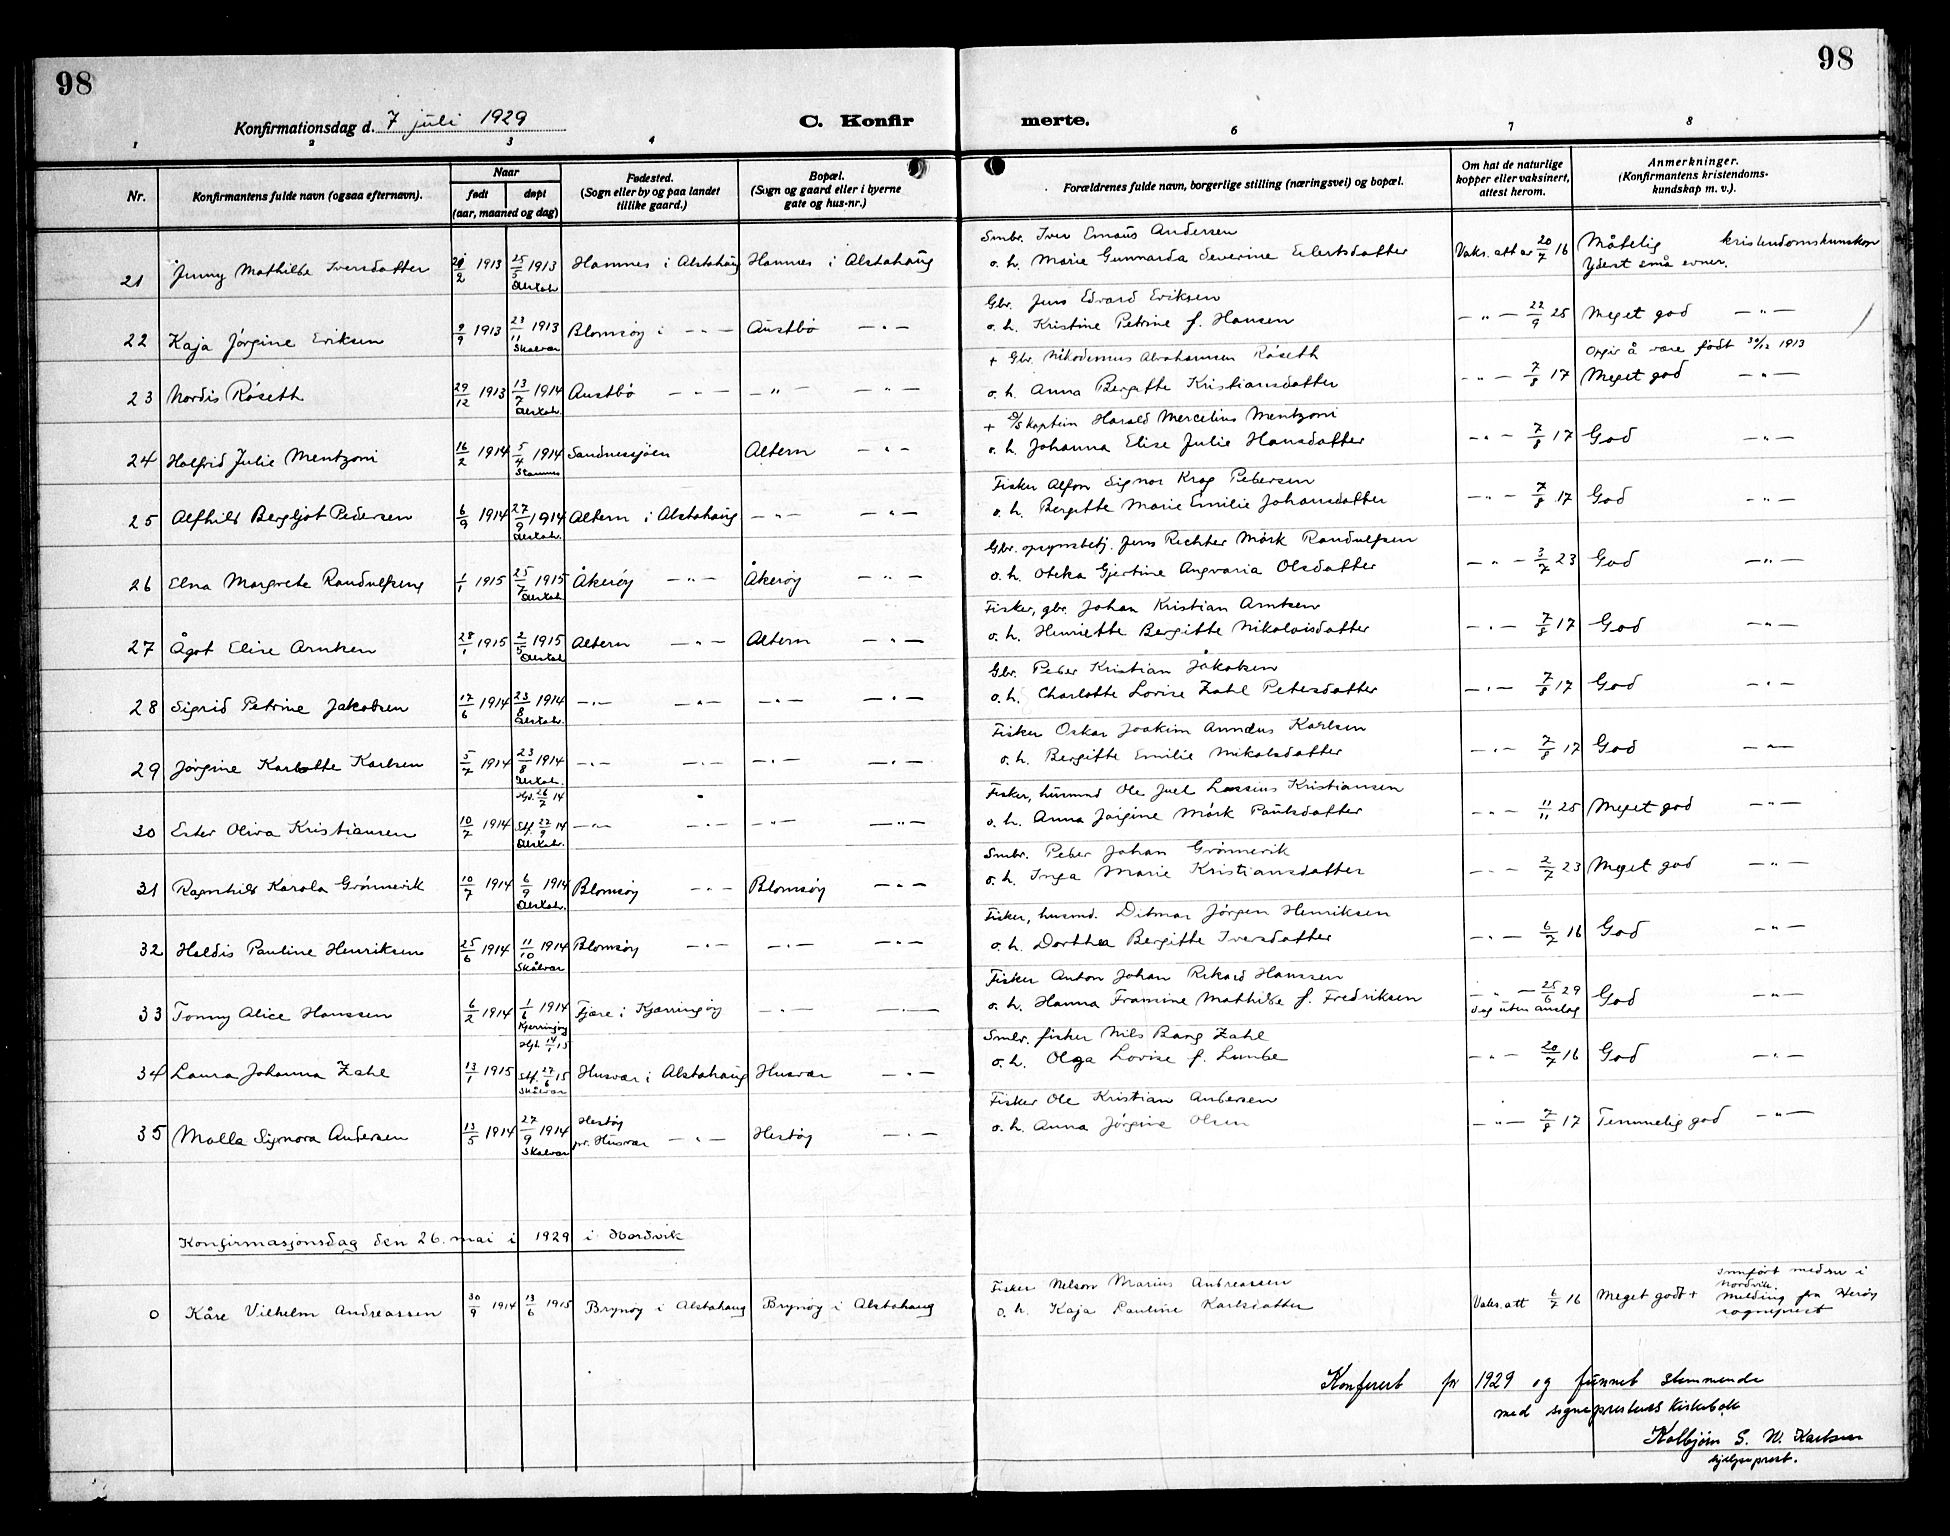 98
98
Konfirmationsdag d. 7 juli 1929
C. Konfir
merte.
1 2 3 4 6 7 8
Nr.
Konfirmantens fulde navn (ogsaa efternavn).
Naar
født døpt
(aar, maaned og dag)
Fødested.
(Sogn eller by og paa landet
tillike gaard.)
Bopæl.
(Sogn og gaard eller i byerne
gate og hus-nr.)
Forældrenes fulde navn, borgerlige stilling (næringsvei) og bopæl.
Om hat de naturlige
kopper eller vaksinert,
attest herom.
Anmerkninger.
(Konfirmantens kristendoms-
kundskap m. v.).
Smbr. Iver Emaus Andersen
21 Jenny Mathilde Iversdatter 2 1913 25/5 1913 Hamnes i Alstahaug Hamnes i Alstahaug o. h. Marie Gunnarda Severine Eilertsdatter Vaks. att av 20/7 16 Måtelig kristendomskunskap
Yderst små evner.
Gbr. Jens Edvard Eriksen
22 Kaja Jørgine Eriksen 9/9 1913 23/11 1913 Blomsøy i - " - Austbø - " - o. h. Kristine Petrine f. Hansen - " - 22/9 25 Meget god - " -
Skålvær
+ Gbr. Nikodemus Abrahamsen Røseth Opgir å være født 30/12 1913
23 Nordis Røseth 29/12 1913 13/7 1914 Austbø - " - - " - - " - o. h. Anna Bergitte Kristiansdatter - " - 7/8 17 Meget god - " -
+ D/S kaptein Harald Mercelius Mentzoni
24 Halfrid Julie Mentzoni 16/2 1914 5/4 1914 Sandnessjøen Altern - " - o. h. Johanna Elise Julie Hansdatter - " - 7/8 17 God - " -
Stamnes
Fisker Alfon Signor Krog Pedersen
25 Alfhild Bergljot Pedersen 6/9 1914 27/9 1914 Altern i Alstahaug - " - - " - o. h. Bergitte Marie Emilie Johansdatter - " - 7/8 17 God - " -
Gbr. opsynsbetj. Jens Richter Mørk Randulfsen
26 Elna Margrete Randulfsen 1/1 1915 25/7 1915 Åkerøy - " - Åkerøy - " - o. h. Oteka Gjertine Angvaria Olsdatter - " - 3/7 23 God - " -
Fisker, gbr. Johan Kristian Arntsen
27 Ågot Elise Arntsen 28/1 1915 2/5 1915 Altern - " - Altern - " - o. h. Henriette Bergitte Nikolaisdatter - " - 7/8 17 God - " -
Gbr. Peder Kristian Jakobsen
28 Sigrid Petrine Jakobsen 17/6 1914 23/8 1914 - " - - " - - " - - " - o. h. Charlotte Lovise Zahl Petersdatter - " - 7/8 17 God - " -
Fisker Oskar Joakim Amndus Karlsen
29 Jørgine Karlotte Karlsen 5/7 1914 23/8 1914 - " - - " - - " - - " - o. h. Bergitte Emilie Nikolsdatter - " - 7/8 17 God - " -
Hjd. 26/7 14 Fisker, husmnd Ole Juel Lassius Kristiansen
30 Ester Oliva Kristiansen 10/7 1914 Stf. 27/9 14 - " - - " - - " - - " - o. h. Anna Jørgine Mørk Paulsdatter - " - 11/11 25 Meget god - " -
Smbr. Peder Johan Grønnevik
31 Ragnhild Karola Grønnevik 10/7 1914 6/9 1914 Blomsøy - " - Blomsøy - " - o. h. Inga Marie Kristiansdatter - " - 2/7 23 Meget god - " -
Fisker, husmd. Ditmar Jørgen Henriksen
32 Haldis Pauline Henriksen 25/6 1914 11/10 1914 Blomsøy - " - - " - - " - o. h. Dorthea Bergitte Iversdatter - " - 6/7 16 God - " -
Skålvær
Fisker Anton Johan Rikard Hanssen
33 Tonny Alice Hanssen 6/2 1914 1/6 1914 Fjære i Kjerringøy - " - - " - o. h. Hanna Framine Mathilde f. Fredriksen - " - 25/6 29 God - " -
Kjerringøy
dog uten anslag
Hjd. 14/1 15 Smbr. fisker Nils Bang Zahl
34 Laura Johanna Zahl 13/1 1915 Stf. 27/6 15 Husvær i Alstahaug Husvær - " - o. h. Olga Lovise f. Lunde - " - 20/7 16 God - " -
Skålvær
Fisker Ole Kristian Andersen
35 Malla Signora Andersen 13/5 1914 27/9 1914 Hestøy pr. Husvær - " - Hestøy - " - o. h. Anna Jørgine Olsen - " - 7/8 17 Temmelig god - " -
Skålvær
Konfirmasjonsdag den 26. mai i 1929 i Nordvik
Fisker Nelson Marius Andreassen
0 Kåre Vilhelm Andreassen 30/9 1914 13/6 1915 Brynøy i Alstahaug Brynøy i Alstahaug o. h. Kaja Pauline Karlsdatter Vaks. att 6/7 16 Meget godt +
innført medm i
Nordvik.
Melding fra Herøy
sogneprest
Konferert for 1929 og funnet stemmende
med sogneprestens kirkebok
Kolbjørn S. W. Karlsen
hjelpeprest.